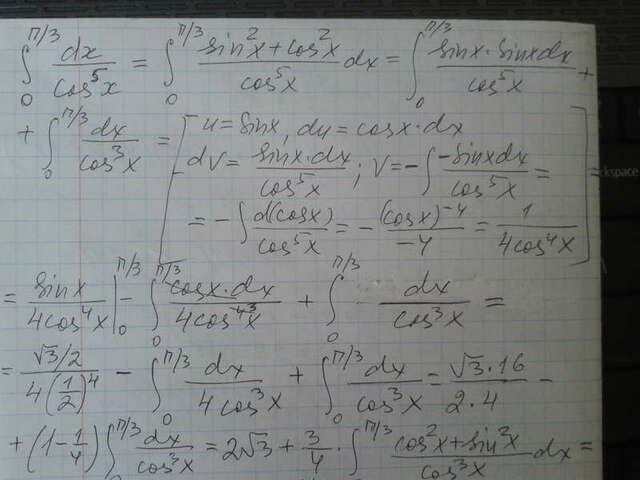 ∫₀^{π/3} dx/cos⁵x = ∫₀^{π/3} (sin²x + cos²x)/cos⁵x dx = ∫₀^{π/3} sinx · sinxdx/cos⁵x +
+ ∫₀^{π/3} dx/cos³x = [u = sinx, du = cosx · dx
dV = sinx · dx/cos⁵x ; V = -∫ -sinxdx/cos⁵x =
= -∫ d(cosx)/cos⁵x = -(cosx)⁻⁴/-4 = 1/4cos⁴x] =
= sinx/4cos⁴x |₀^{π/3} - ∫₀^{π/3} cosx · dx/4cos⁴x + ∫₀^{π/3} dx/cos³x =
= √3/2 / 4(1/2)⁴ - ∫₀^{π/3} dx/4cos³x + ∫₀^{π/3} dx/cos³x = √3 · 16/2 · 4 -
+ (1 - 1/4) ∫₀^{π/3} dx/cos³x = 2√3 + 3/4 · ∫₀^{π/3} (cos²x + sin²x)/cos³x dx =